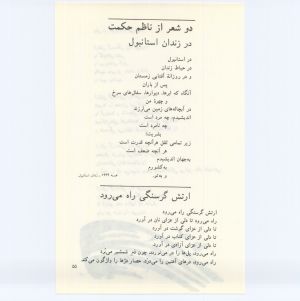 دو شعر از ناظم حکمت
در زندان استانبول
در استانبول
در حیاط زندان
و در روزنهٔ آفتابی زمستان
پس از باران
آنگاه که ابرها، دیوارها، سفال‌های سرخ
و چهرهٔ من
در آبچاله‌های زمین می‌لرزند
اندیشیدم، چه مرد است
چه نامرد است
بشریت!
زیر تمامی ثقل هرآنچه قدرت است
هر آنچه ضعف است
به‌جهان اندیشیدم
به‌کشورم
و به‌تو.
ارتش گرسنگی راه می‌رود
ارتش گرسنگی راه می‌رود
راه می‌رود تا دلی از عزای نان در آورد
تا دلی از عزای گوشت در آورد
تا دلی از عزای کتاب در آورد
تا دلی از عزای آزادی در آورد.
راه می‌رود، پل‌ها را در می‌نوردد، چون دم شمشیر می‌برد
راه می‌رود، درهای آهنین را می‌درد، حصار دژها را واژگون می‌کند
۵۵